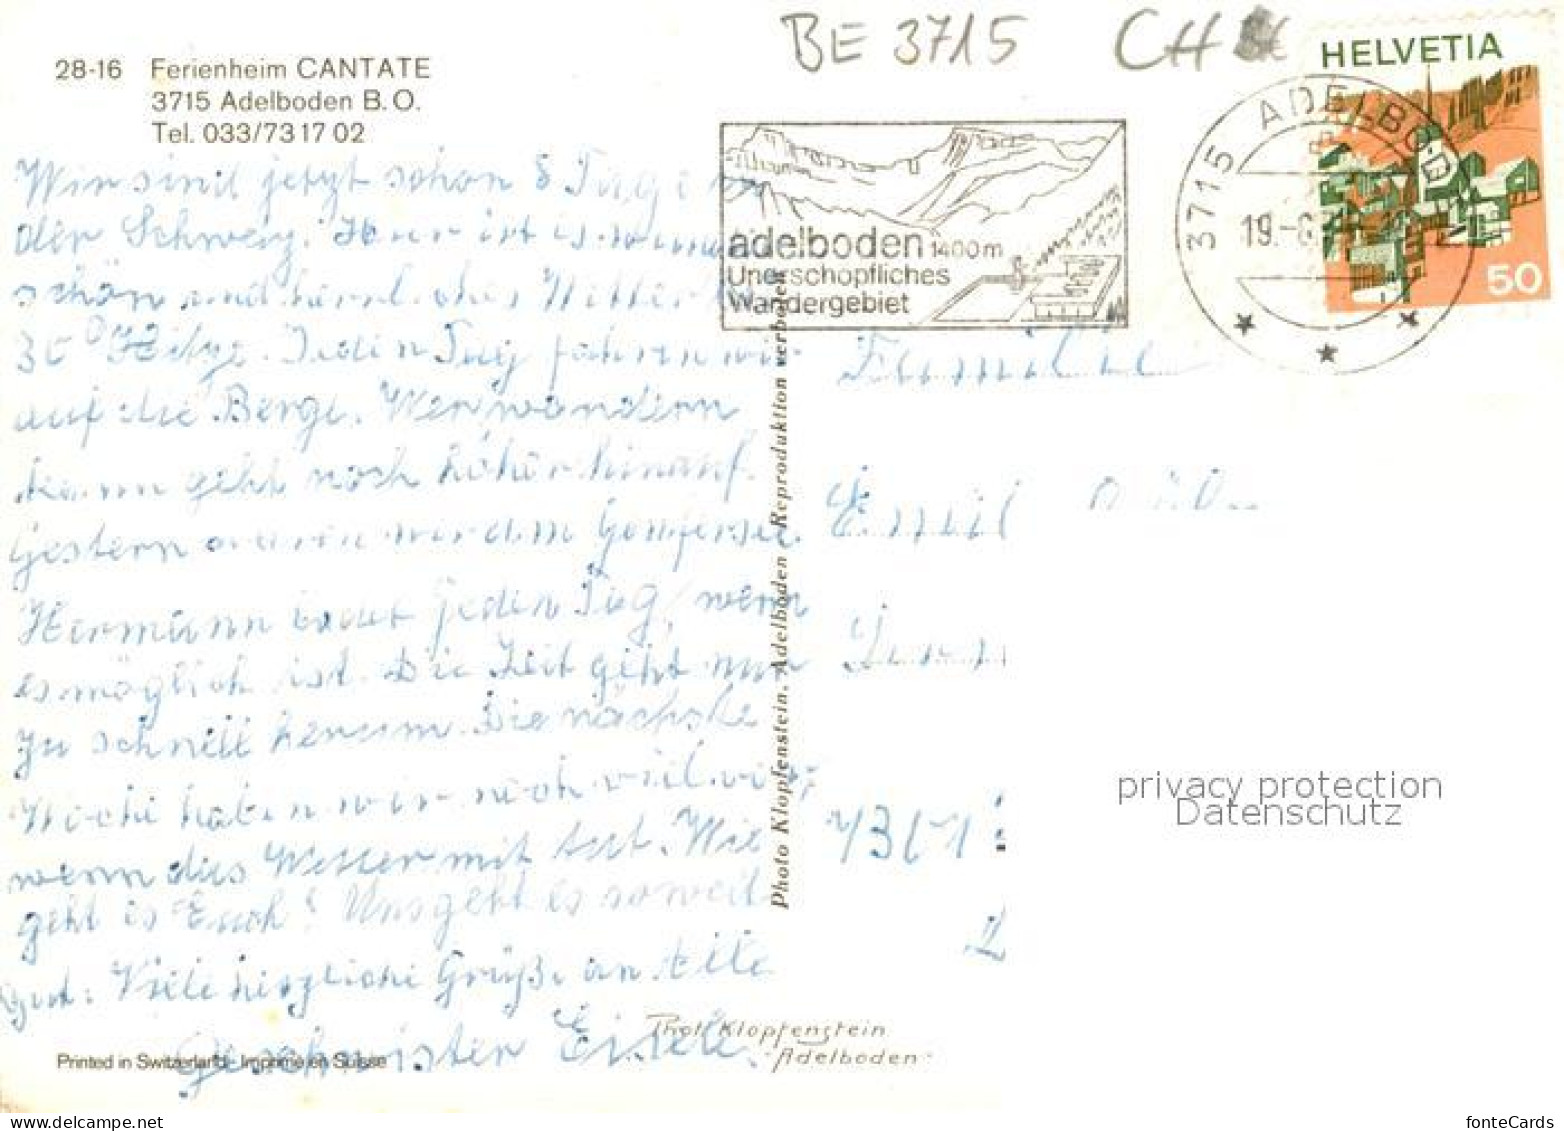 BE 3715 CH
28-16 Ferienheim CANTATE
3715 Adelboden B.O.
Tel. 033/73 17 02
HELVETIA
50
3715 ADELBODEN
19.-8.
adelboden 1400m
Unerschöpfliches
Wandergebiet
Wir sind jetzt schon 8 Tage in
der Schweiz. Hier ist es
schön und herrliches Wetter
30° Hitze. Jeden Tag fahren wir
auf die Berge. Wer wandern
kann geht noch höher hinauf.
Gestern waren wir am
Hermann badet jeden Tag, wenn
es möglich ist. Die Zeit geht nur
zu schnell herum. Die nächste
Woche haben wir noch viel vor,
wenn das Wetter mit tut. Wie
geht es Euch? Uns geht es soweit
gut. Viele herzliche Grüße an Alle
Geschwister Eisele.
Familie
Emil
7
Photo Klopfenstein, Adelboden Reproduktion verboten
privacy protection
Datenschutz
Phot. Klopfenstein
Adelboden
Printed in Switzerland - Imprimé en Suisse
fonteCards